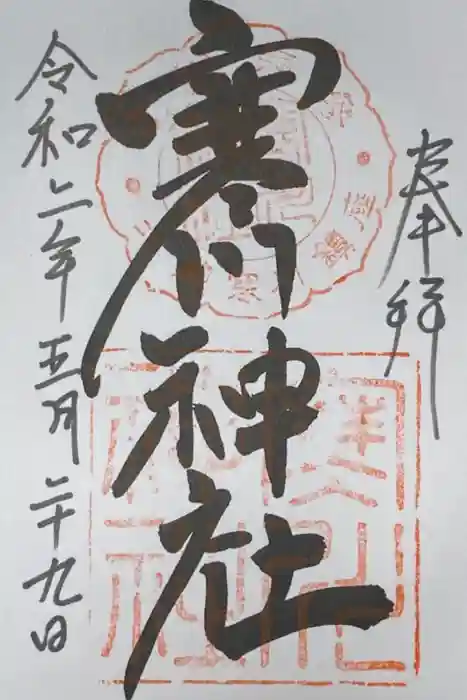 奉拝
寒川神社
令和二年五月二十九日